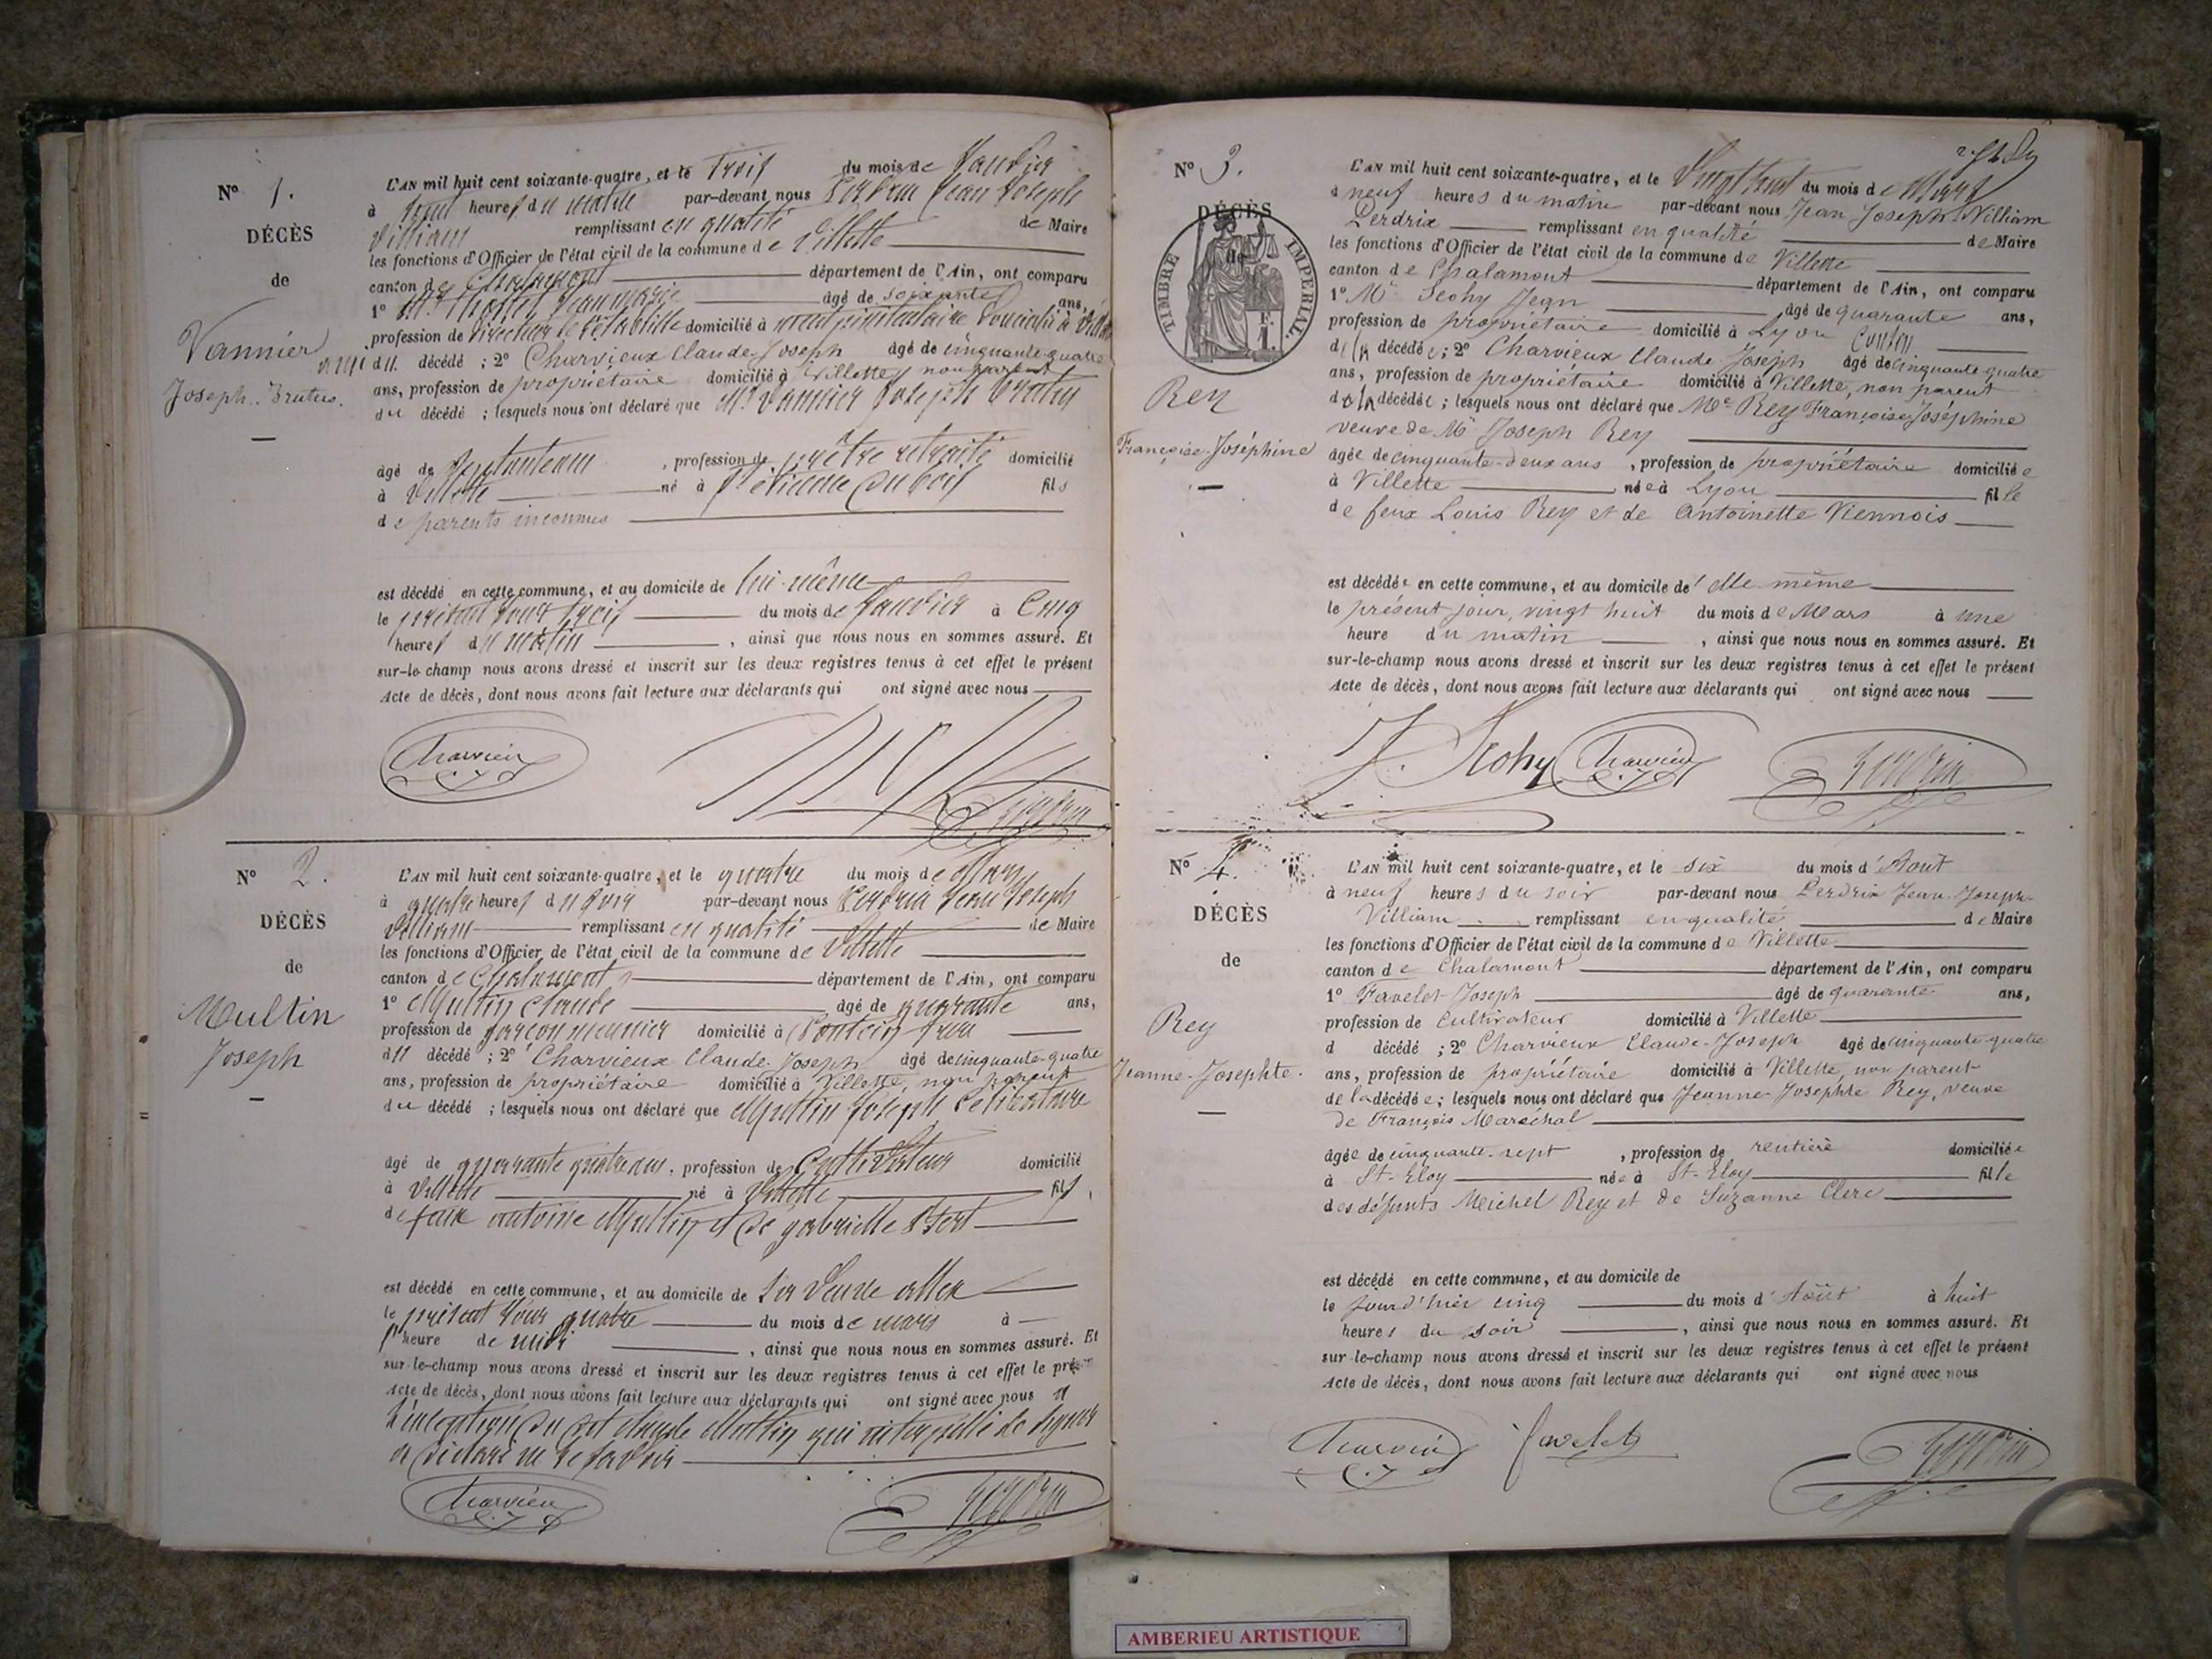 N° 1.
DÉCÈS
de
Vannier
Joseph-Brutus.
L'AN mil huit cent soixante-quatre, et le Trois du mois de Janvier
à heures du matin par-devant nous Perdrix Jean Joseph
Villiam remplissant en qualité de Maire
les fonctions d'Officier de l'état civil de la commune de Villette
canton de Chalamont département de l'Ain, ont comparu
1° Mr. Jeanmarie âgé de soixante ans,
profession de Directeur de domicilié à
ami du décédé ; 2° Charvieux Claude-Joseph âgé de cinquante-quatre
ans, profession de propriétaire domicilié à Villette, non parent
du décédé ; lesquels nous ont déclaré que Mr. Vannier Joseph Brutus
âgé de , profession de prêtre retraité domicilié
à Villette né à St étienne du bois fils
de parents inconnus
est décédé en cette commune, et au domicile de lui-même
le présent jour trois du mois de Janvier à Cinq
heures du matin , ainsi que nous nous en sommes assuré. Et
sur-le-champ nous avons dressé et inscrit sur les deux registres tenus à cet effet le présent
Acte de décès, dont nous avons fait lecture aux déclarants qui ont signé avec nous
Charvieux
C. J.
Perdrix
N° 2.
DÉCÈS
de
Multin
Joseph
L'AN mil huit cent soixante-quatre, et le quatre du mois de Mars
à quatre heures du soir par-devant nous Perdrix Jean Joseph
Villiam remplissant en qualité de Maire
les fonctions d'Officier de l'état civil de la commune de Villette
canton de Chalamont département de l'Ain, ont comparu
1° Multin Claude âgé de quarante ans,
profession de garçon meunier domicilié à Poncin
du décédé ; 2° Charvieux Claude-Joseph âgé de cinquante-quatre
ans, profession de propriétaire domicilié à Villette, non parent
du décédé ; lesquels nous ont déclaré que Multin Joseph Célibataire
âgé de quarante quatre ans, profession de Cultivateur domicilié
à Villette né à Villette fils
de feux antoine Multin et de gabrielle
est décédé en cette commune, et au domicile de
le présent jour quatre du mois de mars à
heure de midi , ainsi que nous nous en sommes assuré. Et
sur-le-champ nous avons dressé et inscrit sur les deux registres tenus à cet effet le présent
Acte de décès, dont nous avons fait lecture aux déclarants qui ont signé avec nous
à l'exception du dit Claude Multin qui interpellé de signer
a déclaré ne le savoir
Charvieux
C. J.
Perdrix
N° 3.
DÉCÈS
de
TIMBRE IMPERIAL.
Rey
Françoise-Joséphine
L'AN mil huit cent soixante-quatre, et le Vingt huit du mois de Mars
à neuf heures du matin par-devant nous Jean Joseph Villiam
Perdrix remplissant en qualité de Maire
les fonctions d'Officier de l'état civil de la commune de Villette
canton de Chalamont département de l'Ain, ont comparu
1° Mr Jean âgé de quarante ans,
profession de propriétaire domicilié à Lyon Cousin
de la décédée ; 2° Charvieux Claude Joseph âgé de cinquante quatre
ans, profession de propriétaire domicilié à Villette, non parent
de la décédée ; lesquels nous ont déclaré que Me Rey Françoise-Joséphine
veuve de Mr Joseph Rey
âgée de cinquante-deux ans , profession de propriétaire domiciliée
à Villette née à Lyon fille
de feux Louis Rey et de Antoinette Viennois
est décédée en cette commune, et au domicile d'elle même
le présent jour, vingt huit du mois de Mars à une
heure du matin , ainsi que nous nous en sommes assuré. Et
sur-le-champ nous avons dressé et inscrit sur les deux registres tenus à cet effet le présent
Acte de décès, dont nous avons fait lecture aux déclarants qui ont signé avec nous
Charvieux
C. J.
Perdrix
N° 4.
DÉCÈS
de
Rey
Jeanne-Josephte.
L'AN mil huit cent soixante-quatre, et le six du mois d'Août
à neuf heures du soir par-devant nous Perdrix Jean-Joseph-
Villiam remplissant en qualité de Maire
les fonctions d'Officier de l'état civil de la commune de Villette
canton de Chalamont département de l'Ain, ont comparu
1° Favelet Joseph âgé de quarante ans,
profession de Cultivateur domicilié à Villette
d décédé ; 2° Charvieux Claude-Joseph âgé de cinquante-quatre
ans, profession de propriétaire domicilié à Villette, non parent
de la décédée ; lesquels nous ont déclaré que Jeanne-Josephte Rey, veuve
de François Maréchal
âgée de cinquante-sept , profession de rentière domiciliée
à St-Eloy née à St-Eloy fille
des défunts Meichel Rey et de Suzanne Clerc
est décédé en cette commune, et au domicile de
le jourd'hier cinq du mois d'Août à huit
heures du soir , ainsi que nous nous en sommes assuré. Et
sur-le-champ nous avons dressé et inscrit sur les deux registres tenus à cet effet le présent
Acte de décès, dont nous avons fait lecture aux déclarants qui ont signé avec nous
Charvieux
C. J.
favelet
Perdrix
AMBERIEU ARTISTIQUE